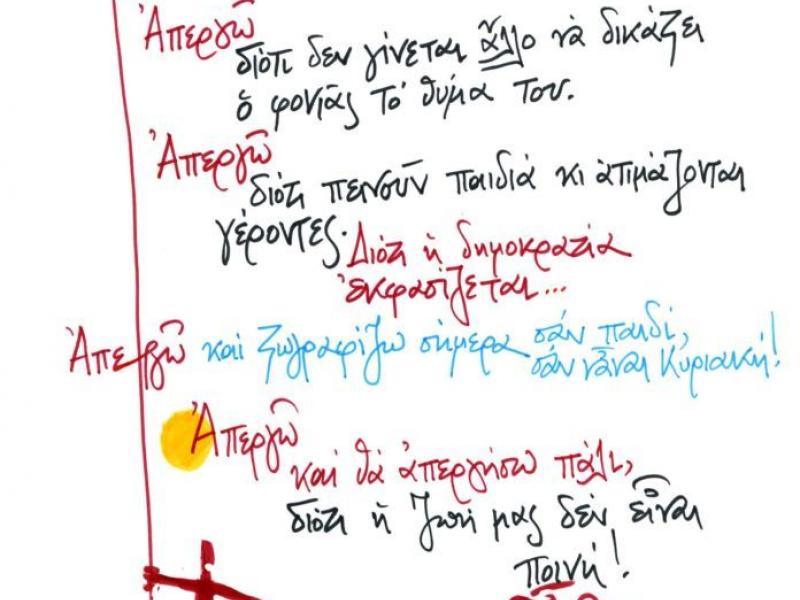 Ἀπεργῶ
διότι δεν γίνεται ἄλλο νὰ δικάζει
ὁ φονιᾶς το θύμα του.
Ἀπεργῶ
διότι πεινοῦν παιδιά κι ἀτιμάζονται
γέροντες. Διότι ἡ δημοκρατία
ἐκφασίζεται...
Ἀπεργῶ και ζωγραφίζω σήμερα σάν παιδί,
σάν νἆναι Κυριακή!
Ἀπεργῶ
και θά ἀπεργήσω πάλι,
διότι ἡ ζωή μας δέν εἶναι
ποινή!